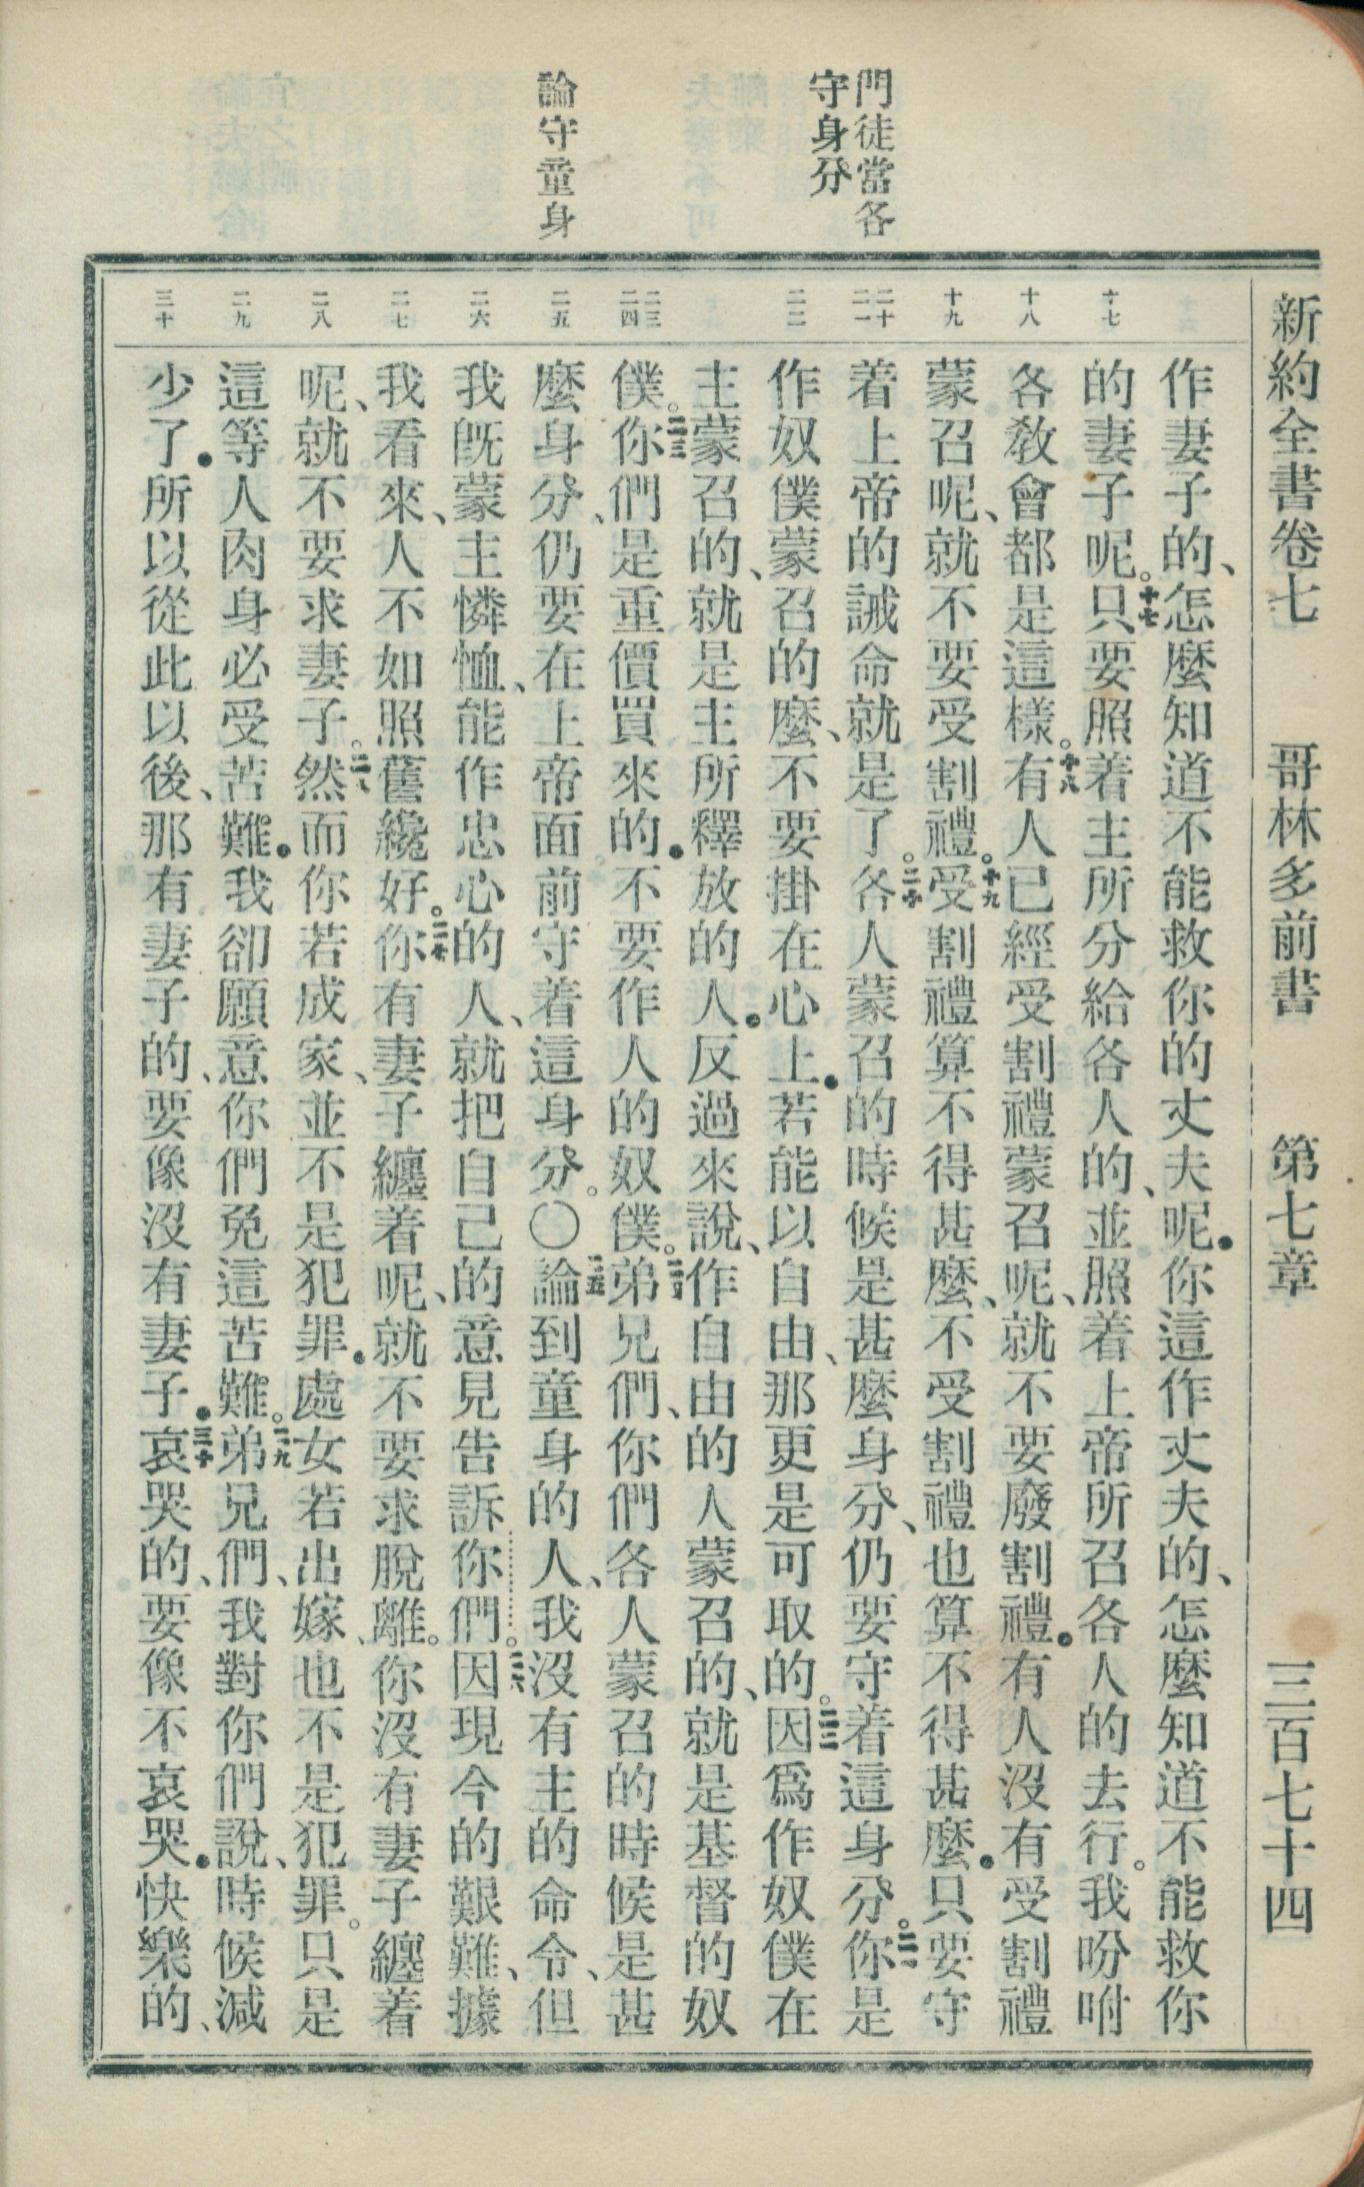 新約全書卷七　哥林多前書　第七章　三百七十四
門徒當各
守身分
論守童身
十七
十八
十九
二十
二一
二二
二三
二四
二五
二六
二七
二八
二九
三十
作妻子的、怎麼知道不能救你的丈夫呢．你這作丈夫的、怎麼知道不能救你
的妻子呢。十七只要照着主所分給各人的、並照着上帝所召各人的去行。我吩咐
各教會都是這樣。十八有人已經受割禮蒙召呢、就不要廢割禮．有人沒有受割禮
蒙召呢、就不要受割禮。十九受割禮算不得甚麼、不受割禮也算不得甚麼．只要守
着上帝的誡命、就是了。二十各人蒙召的時候是甚麼身分、仍要守着這身分。二一你是
作奴僕蒙召的麼、不要掛在心上．若能以自由、那更是可取的。二二因爲作奴僕在
主蒙召的、就是主所釋放的人．反過來說、作自由的人蒙召的、就是基督的奴
僕。二三你們是重價買來的．不要作人的奴僕。二四弟兄們、你們各人蒙召的時候是甚
麼身分、仍要在上帝面前守着這身分。〇二五論到童身的人、我沒有主的命令、但
我旣蒙主憐恤、能作忠心的人、就把自己的意見告訴你們。二六因現今的艱難、據
我看來、人不如照舊纔好。二七你有妻子纏着呢、就不要求脫離。你沒有妻子纏着
呢、就不要求妻子。二八然而你若成家、並不是犯罪．處女若出嫁、也不是犯罪。只是
這等人肉身必受苦難．我卻願意你們免這苦難。二九弟兄們、我對你們說、時候減
少了．所以從此以後、那有妻子的、要像沒有妻子．三十哀哭的、要像不哀哭．快樂的、